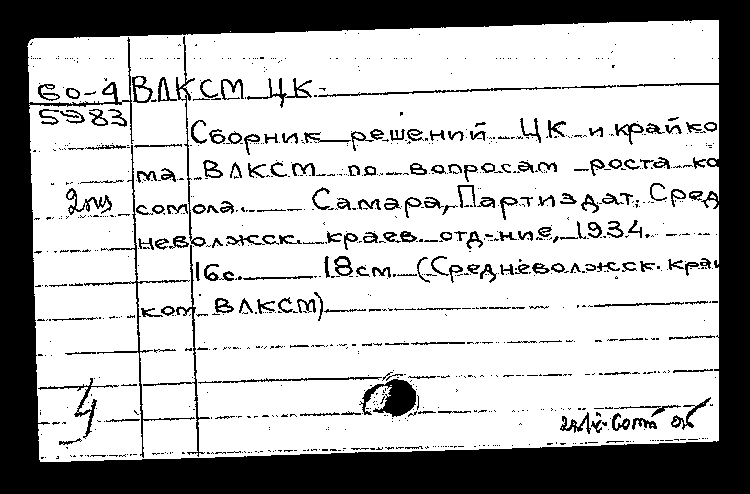 60-4 ВЛКСМ ЦК.
5983
Сборник решений ЦК и крайко
ма ВЛКСМ по вопросам роста ко
2экз сомола. Самара, Партиздат. Сред
неволжск. краев. отд-ние, 1934.
16с. 18см. (Средневолжск. край
ком ВЛКСМ).